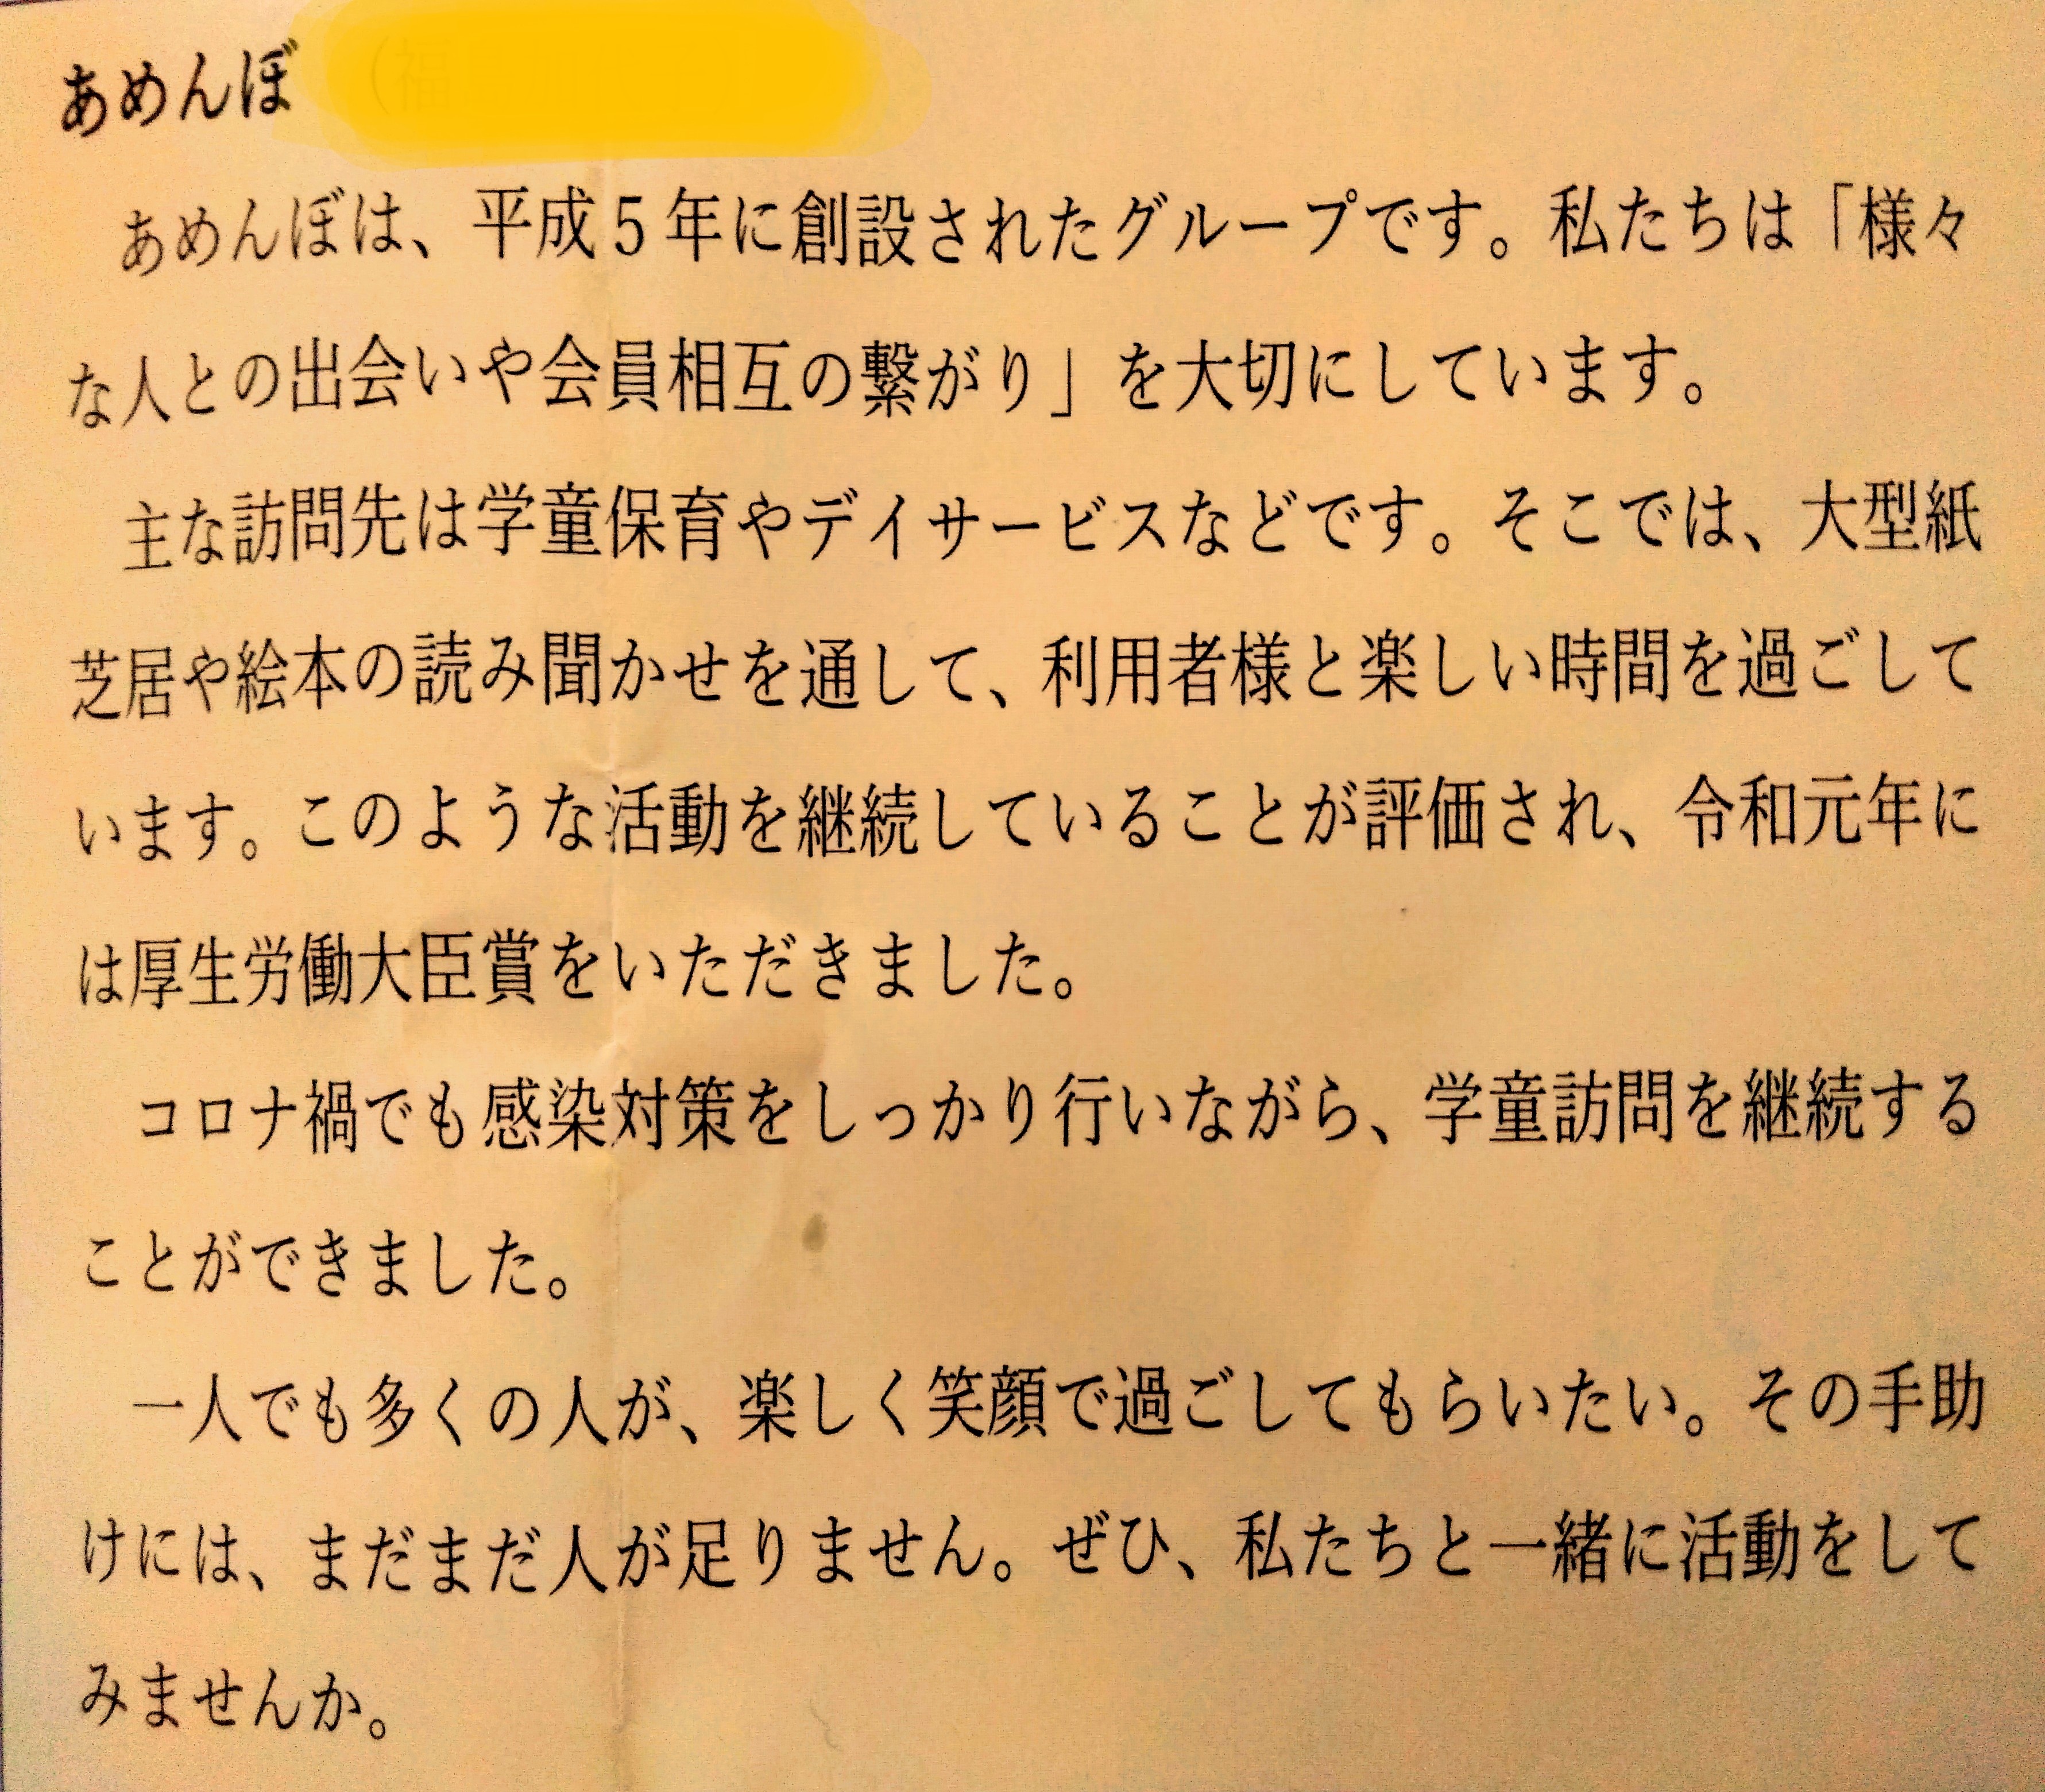 あめんぼ
あめんぼは、平成5年に創設されたグループです。私たちは「様々
な人との出会いや会員相互の繋がり」を大切にしています。
主な訪問先は学童保育やデイサービスなどです。そこでは、大型紙
芝居や絵本の読み聞かせを通して、利用者様と楽しい時間を過ごして
います。このような活動を継続していることが評価され、令和元年に
は厚生労働大臣賞をいただきました。
コロナ禍でも感染対策をしっかり行いながら、学童訪問を継続する
ことができました。
一人でも多くの人が、楽しく笑顔で過ごしてもらいたい。その手助
けには、まだまだ人が足りません。ぜひ、私たちと一緒に活動をして
みませんか。